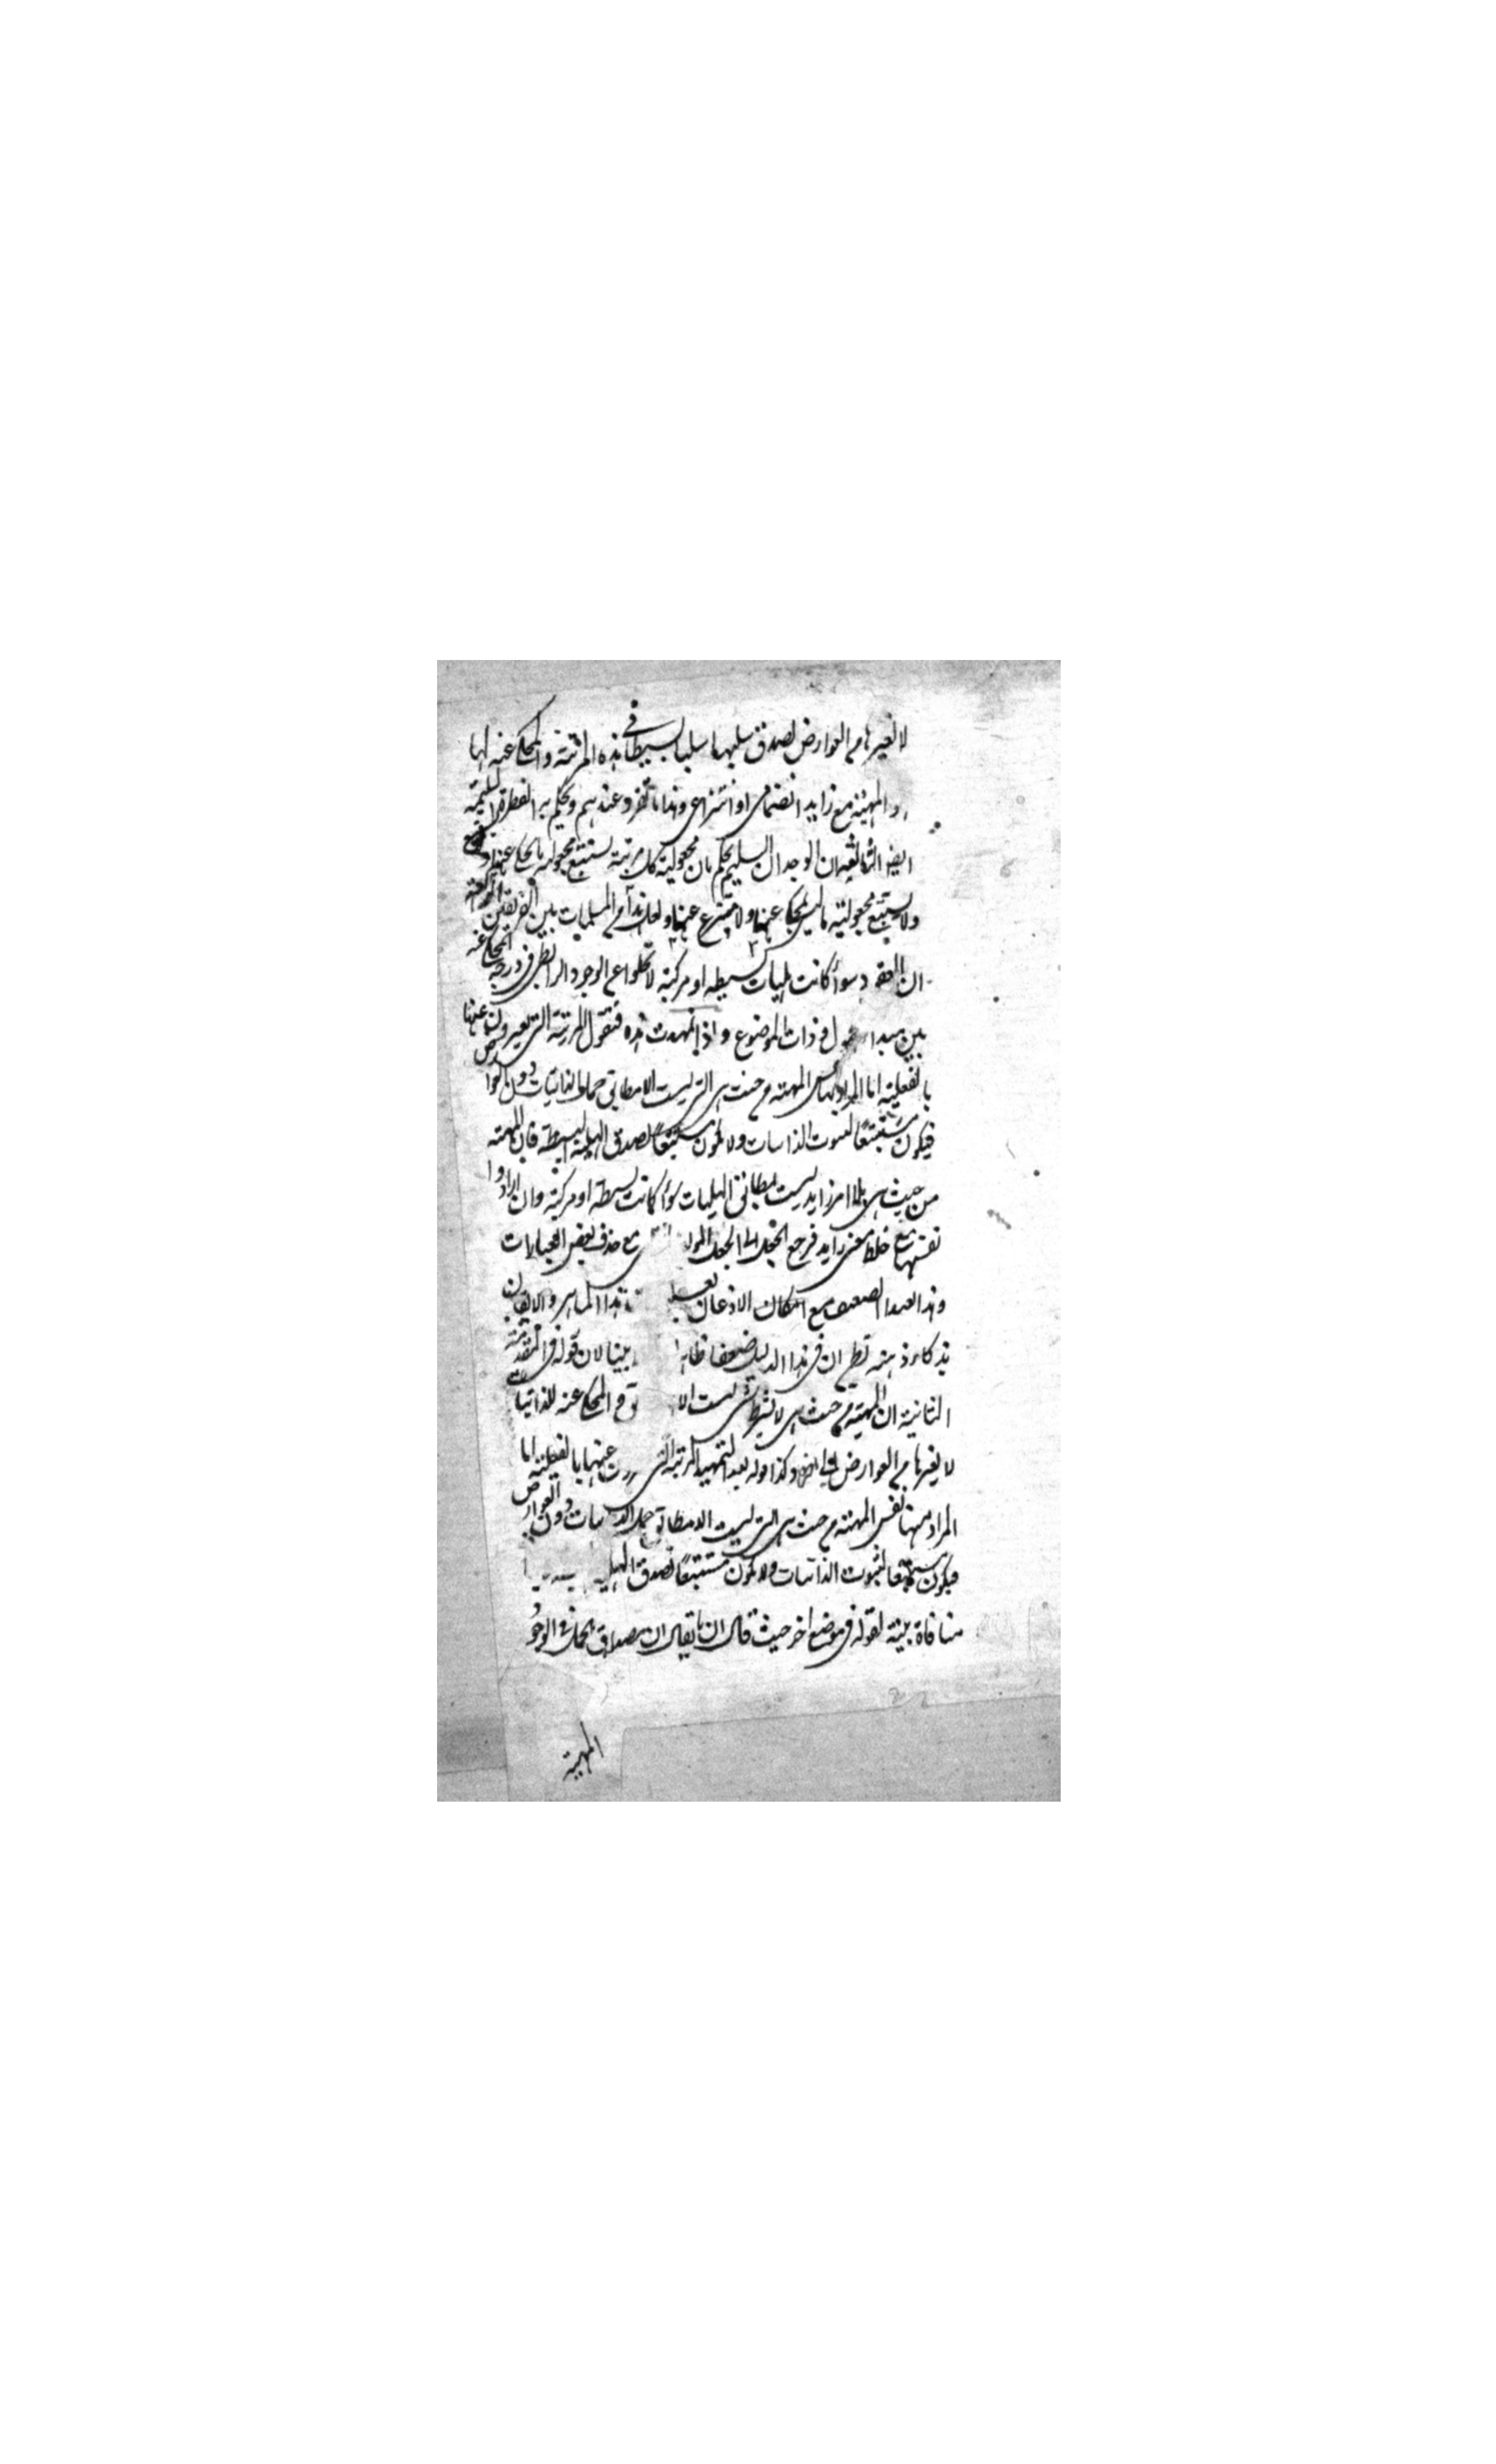 لا لغيرها من العوارض لصدق سلبها سلبا بسيطا في هذه المرتبة والمحكى عنه لها
المهية مع زايد انضمامى او انتزاعى وهذا ما تقرر عندهم ويحكم به الفطرة السليمة
ان الوجدان السليم يحكم بان مجعولية كل مرتبة يستتبع مجعولية ما يحكى عنها
ولا يستتبع مجعولية ما ليس يحكى عنها ولا ينتزع عنها ولعل هذا من المسلمات بين الفريقين
ان العقود سواء كانت هليات بسيطه او مركبة لا تخلوا عن الوجود الرابطى في درجة المحكى عنه
بين مبدا المحمول وذات الموضوع واذا تمهدت هذه فنقول المرتبة التى يعبرون عنها
بالفعلية اما المراد بها نفس المهية من حيث هى التى ليست الا مطابق حمل الذاتيات دون العوارض
فيكون مستتبعًا لثبوت الذاتيات ولا يكون مستتبعًا لصدق الهلية البسيطة فان المهية
من حيث هى بلا امر زايد ليست بمطابق الهليات سواء كانت بسيطة او مركبة وان ارادوا
نفسها مع خلط معنى زايد فرجع الجعل الى الجعل المولف مع حذف بعض العبارات
وهذا العبد الضعيف مع امكان الاذعان هذا الماهر والايقان
بذكاء ذهنه ان في هذا الدليل ضعفا ظاهرا بينا لان قوله في المقدمة
الثانية ان المهية من حيث هى لا بشرط شئ ليست الا المحكى عنه للذاتيات
لا لغيرها من العوارض وكذا قوله بعد التمهيد المرتبة التى عنها بالفعلية اما
المراد منها نفس المهية من حيث هى التى ليست الا مطابق حمل الذاتيات دون العوارض
فيكون مستتبعا لثبوت الذاتيات ولا يكون مستتبعًا لصدق الهلية
منافاة بينة لقوله في موضع اخر حيث قال ان ما يقال ان مصداق الحمل في الوجود
المهية